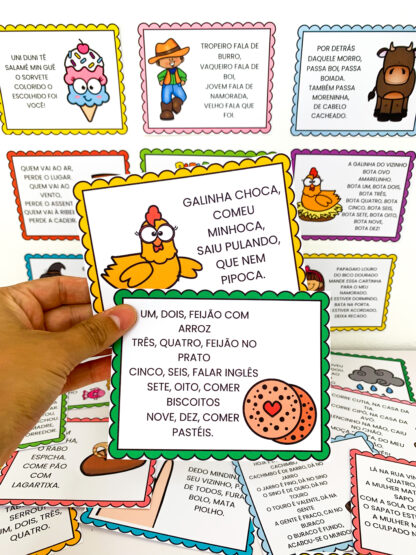 UNI DUNI TÊ
SALAMÊ MIN GUÊ
O SORVETE
COLORIDO O
ESCOLHIDO FOI
VOCÊ!
TROPEIRO FALA DE
BURRO,
VAQUEIRO FALA DE
BOI,
JOVEM FALA DE
NAMORADA,
VELHO FALA QUE
FOI.
POR DETRÁS
DAQUELE MORRO,
PASSA BOI, PASSA
BOIADA.
TAMBÉM PASSA
MORENINHA,
DE CABELO
CACHEADO.
QUEM VAI AO AR,
PERDE O LUGAR.
QUEM VAI AO
VENTO,
PERDE O ASSENT
QUEM VAI À RIBEI
PERDE A CADEIR
A GALINHA DO VIZINHO
BOTA OVO
AMARELINHO.
BOTA UM, BOTA DOIS,
BOTA TRÊS,
BOTA QUATRO, BOTA
CINCO, BOTA SEIS,
BOTA SETE, BOTA OITO,
BOTA NOVE,
BOTA DEZ!
GALINHA CHOCA,
COMEU
MINHOCA,
SAIU PULANDO,
QUE NEM
PIPOCA.
PAPAGAIO LOURO
DO BICO DOURADO
MANDE ESSA CARTINHA
PARA O MEU
NAMORADO.
ESTIVER DORMINDO,
BATA NA PORTA
ESTIVER ACORDADO,
DEIXA RECADO.
UM, DOIS, FEIJÃO COM
ARROZ
TRÊS, QUATRO, FEIJÃO NO
PRATO
CINCO, SEIS, FALAR INGLÊS
SETE, OITO, COMER
BISCOITOS
NOVE, DEZ, COMER
PASTÉIS.
CORRE CUTIA, NA CASA DA
TIA.
CORRE CIPÓ, NA CASA DA
AVÓ.
O RABO
ESPICHA.
COME PÃO
COM
LAGARTIXA.
UM, DOIS, TRÊS,
QUATRO.
DEDO MINDI
SEU VIZINHO, P
DE TODOS, FURA
BOLO, MATA
PIOLHO.
O JARRO É FINO, DÁ NO SINO
O SINO É DE OURO, DÁ NO
TOURO
O TOURO É VALENTE, DÁ NA
GENTE
A GENTE É FRACO, CAI NO
BURACO
O BURACO É FUNDO,
ACABOU-SE O MUNDO
LÁ NA RUA VIN
A MULHER MATO
COM A SOLA DO
O SAPATO ESTR
A MULHER M
O CULPADO